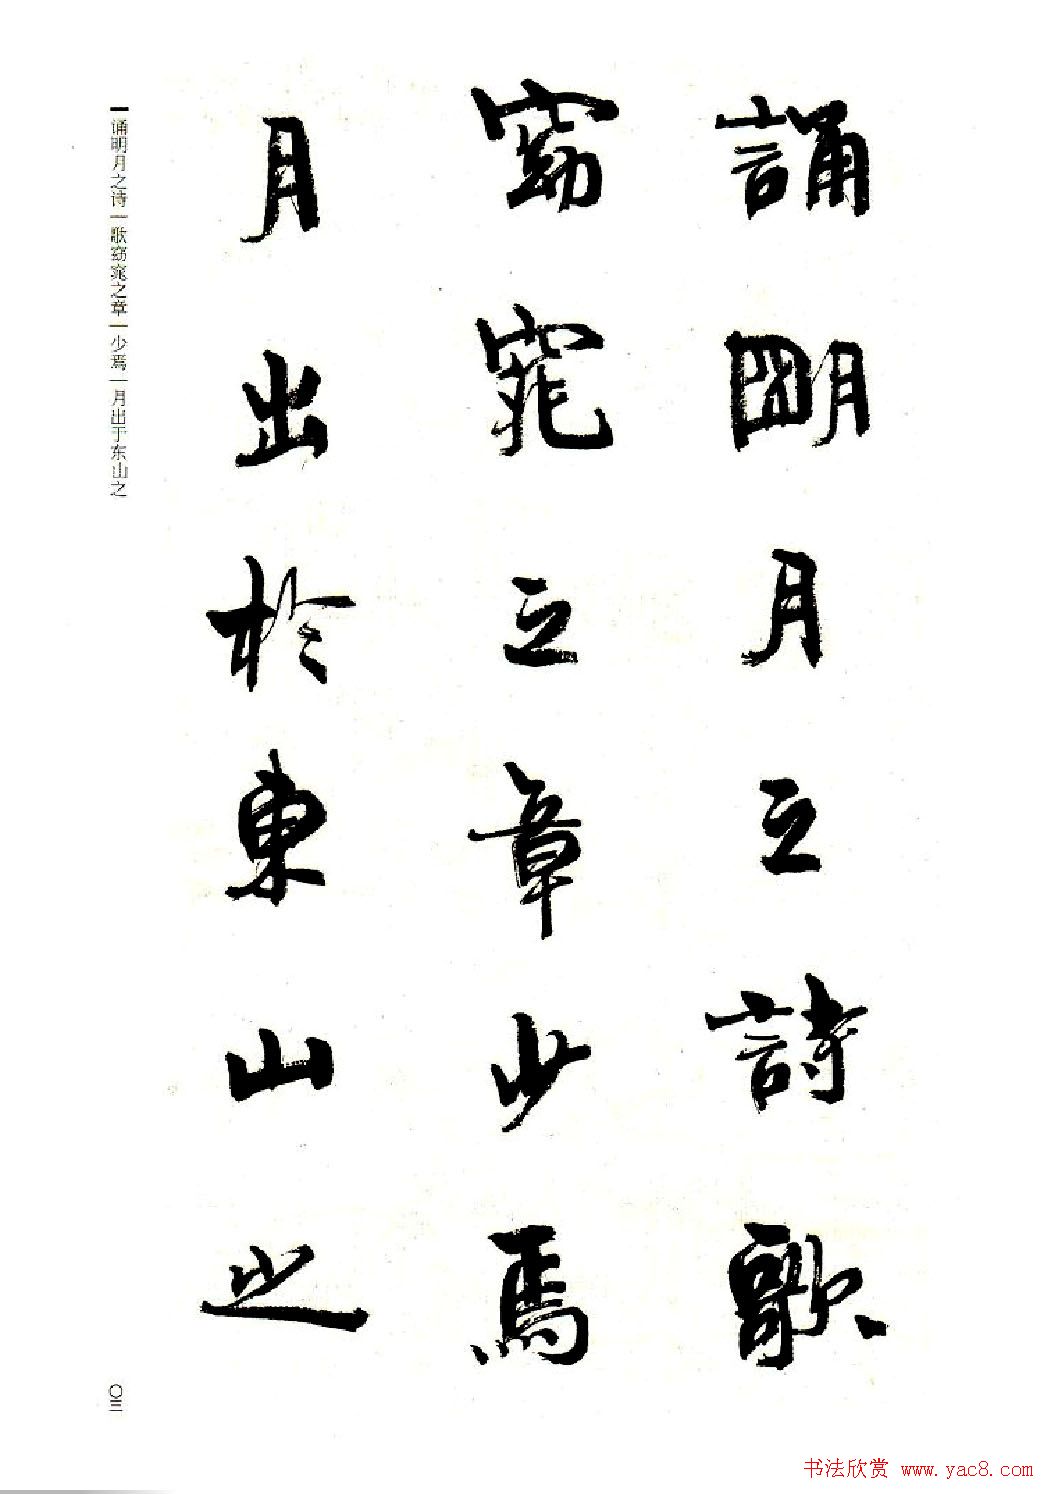 誦明月之詩歌
窈窕之章少焉
月出於東山之
诵明月之诗｜歌窈窕之章｜少焉｜月出于东山之
〇三
书法欣赏 www.yac8.com